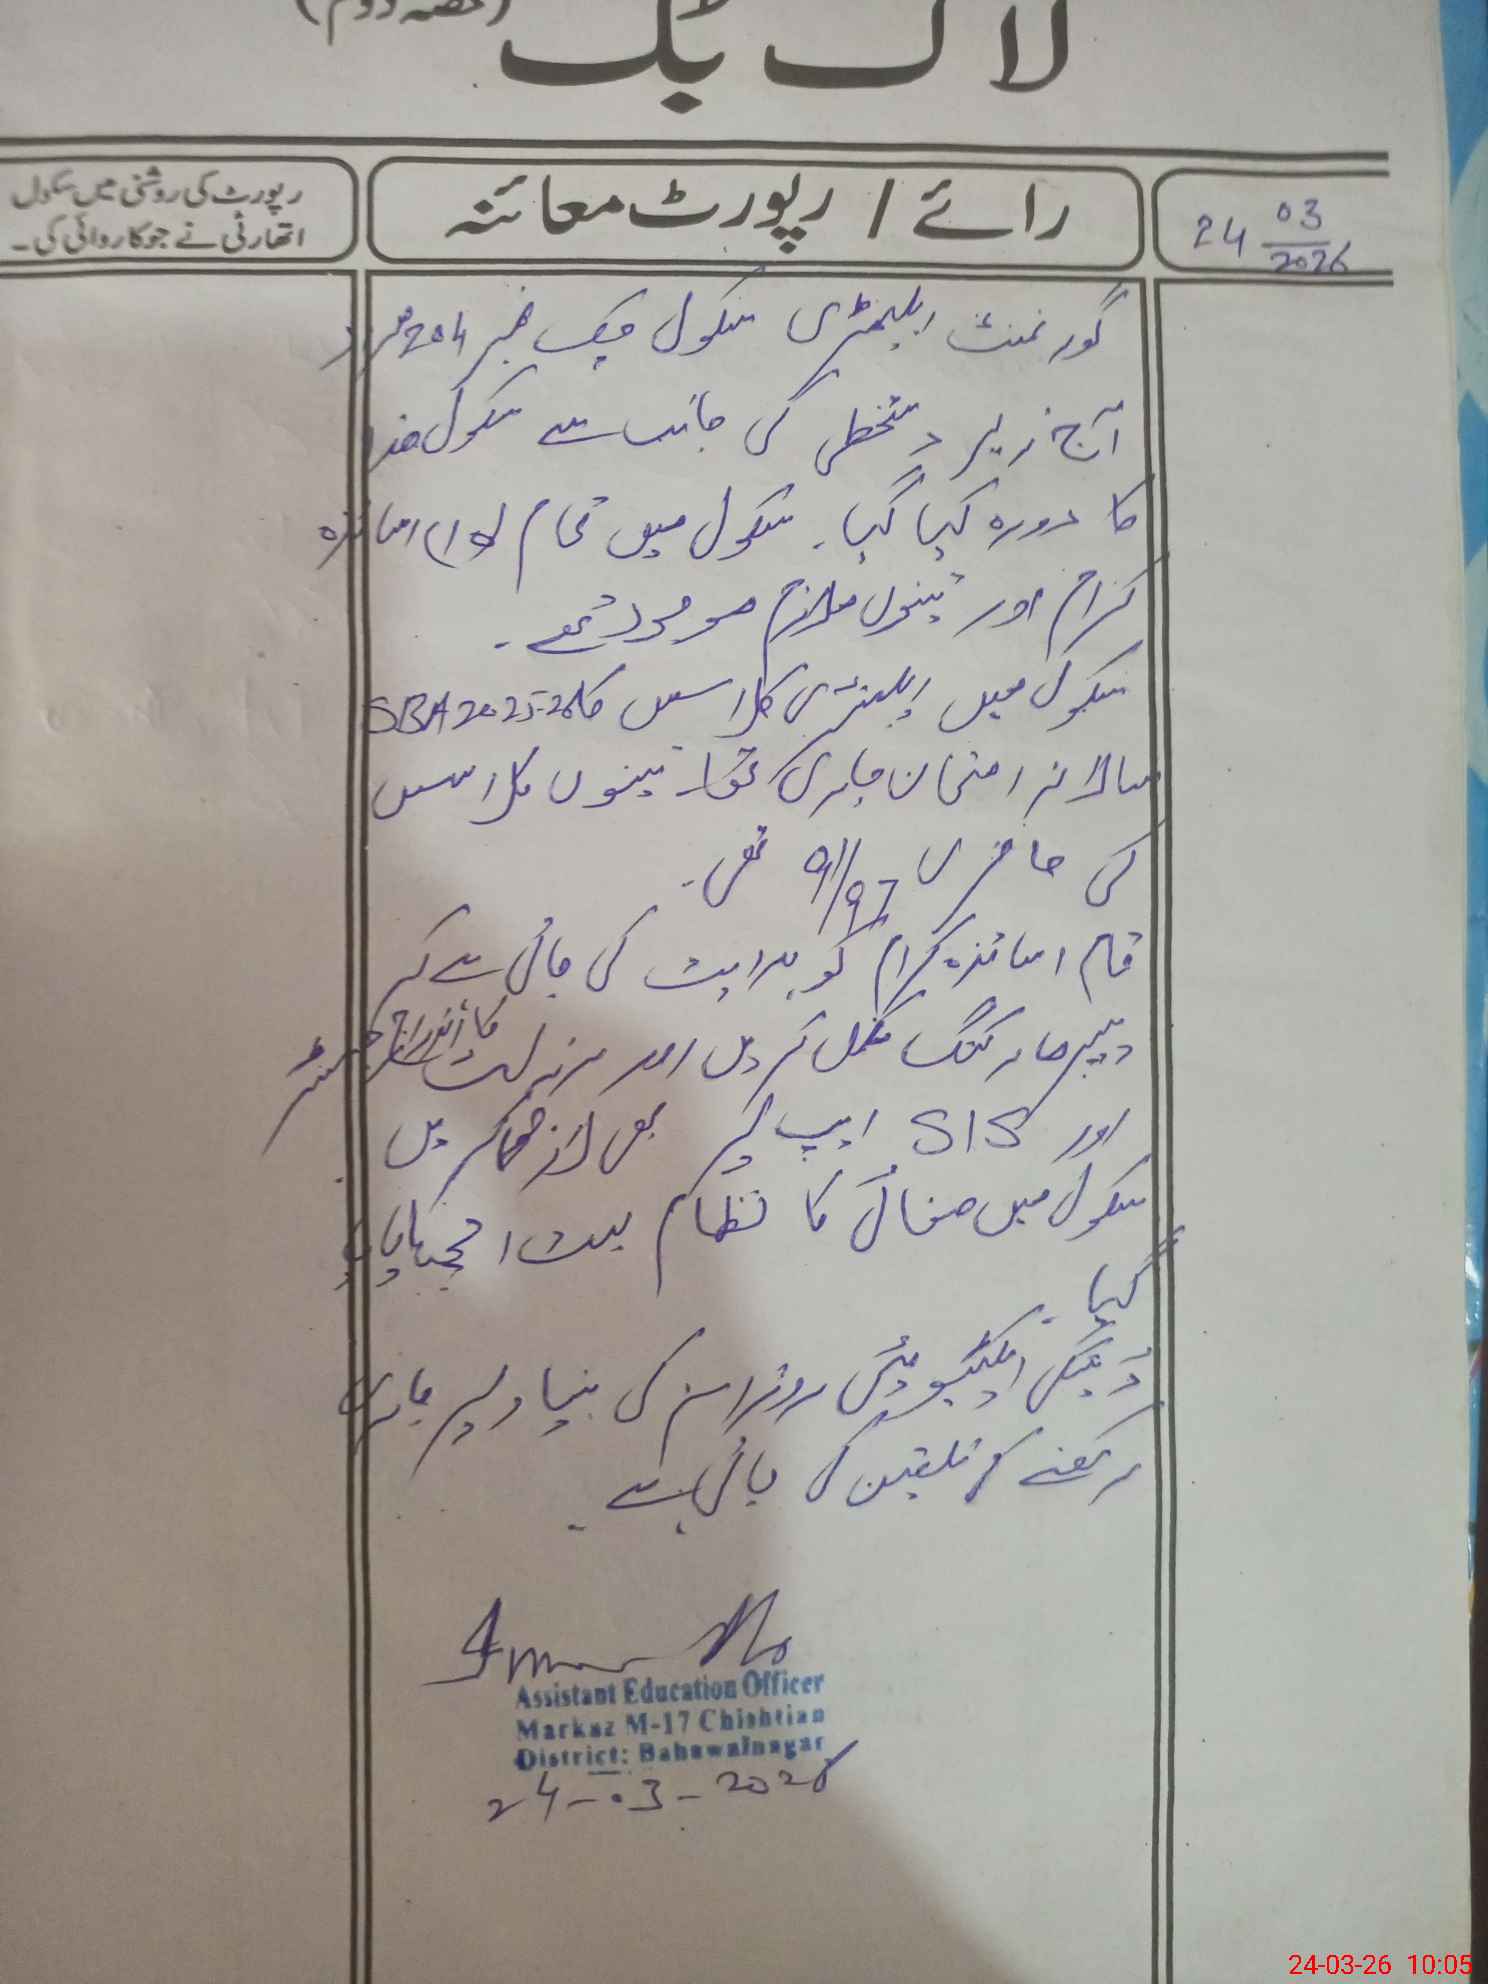 (حصہ دوم)
لاگ بک
24 03/2026
رائے / رپورٹ معائنہ
رپورٹ کی روشنی میں سکول
اتھارٹی نے جو کاروائی کی۔
گورنمنٹ ایلیمنٹری سکول چک نمبر 204 مراد
آج زیر دستخطی کی جانب سے سکول ھذا
کا دورہ کیا گیا۔ سکول میں تمام اساتذہ
کرام اور تینوں ملازم موجود تھے۔
سکول میں ایلیمنٹری کلاسس کا SBA 2025-26
سالانہ امتحان جاری تھا۔ تینوں کلاسس
کی حاضری 91/97 تھی۔
تمام اساتذہ کرام کو ہدایت کی جاتی ہے کہ
پیپر مارکنگ مکمل کر دیں اور رزلٹ کا اندراج رجسٹر
اور SIS ایپ پر بھی کریں
سکول میں صفائی کا نظام بہت اچھا پایا
گیا۔
ڈینگی ایکٹیویٹی روزانہ کی بنیاد پر جاری
رکھنے کی تلقین کی جاتی ہے۔
Assistant Education Officer
Markaz M-17 Chishtian
District: Bahawalnagar
24-03-2026
24-03-26 10:05